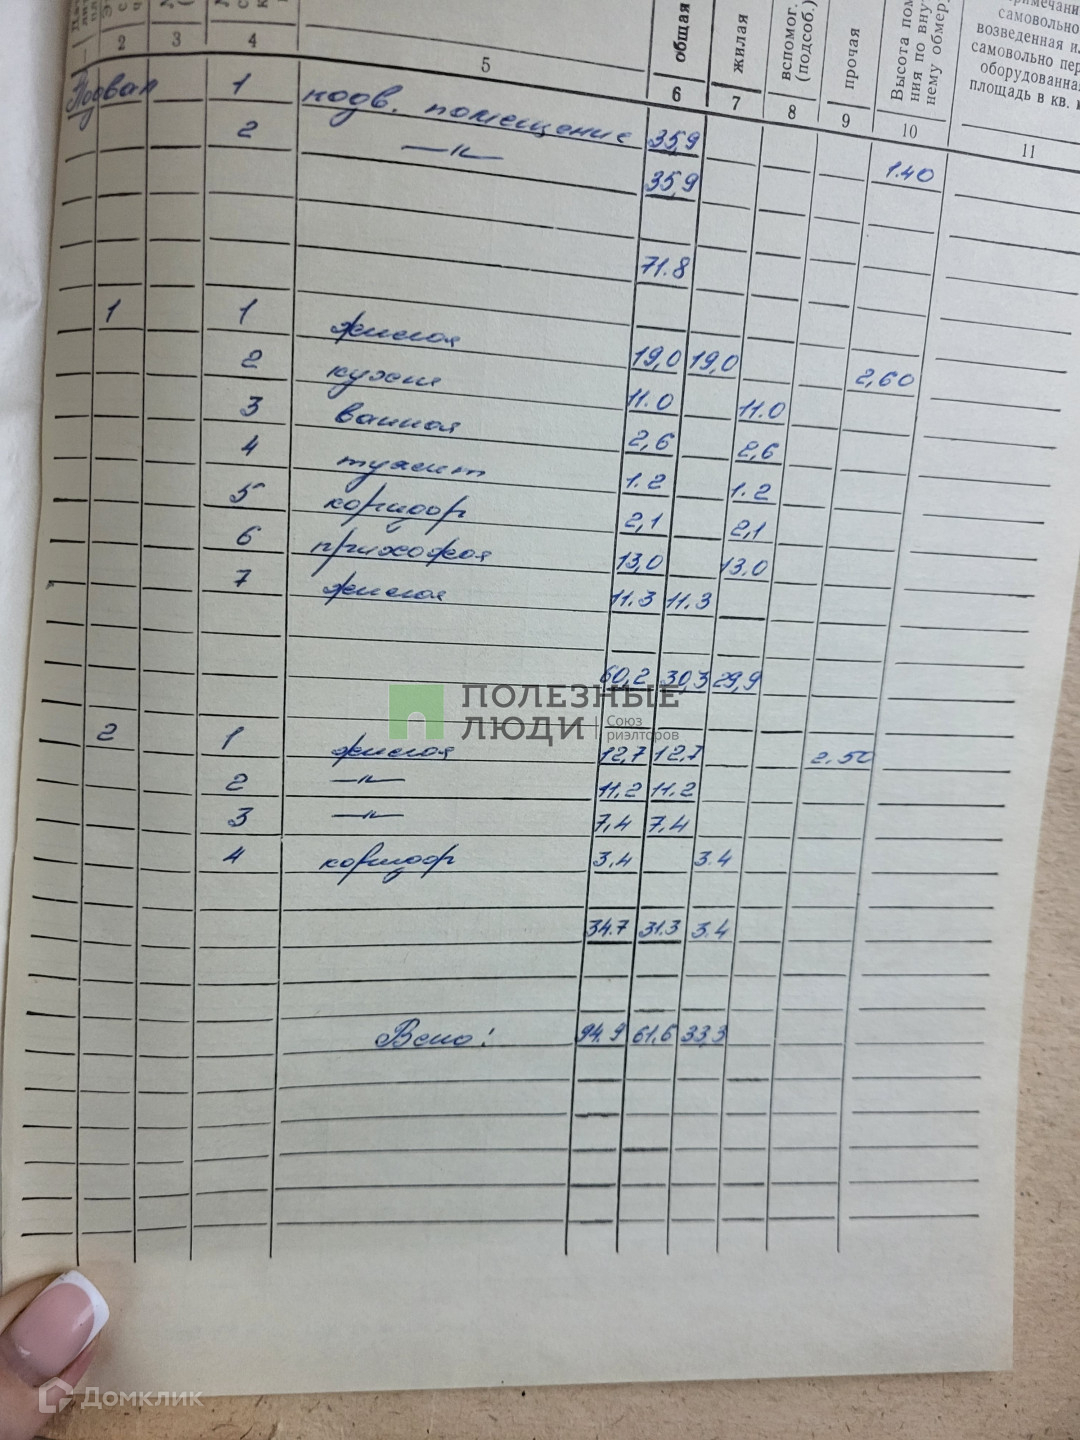 общая
жилая
вспомог.
(подсоб.)
прочая
Высота пом
ния по внут
нему обмер
самовольно
возведенная и
самовольно пер
оборудованная
площадь в кв.
2 3 4 5 6 7 8 9 10 11
Подвал 1 подв. помещение 35,9 1.40
2 —"— 35,9
71.8
1 1 жилая 19,0 19,0 2,60
2 кухня 11.0 11.0
3 ванная 2,6 2,6
4 туалет 1.2 1.2
5 коридор 2,1 2,1
6 прихожая 13,0 13.0
7 жилая 11.3 11.3
60,2 30,3 29,9
ПОЛЕЗНЫЕ
ЛЮДИ Союз
риэлторов
2 1 жилая 12,7 12,7 2.50
2 —"— 11,2 11.2
3 —"— 7,4 7,4
4 коридор 3,4 3.4
34.7 31.3 3.4
Всего: 94.9 61.6 33,3
Домклик